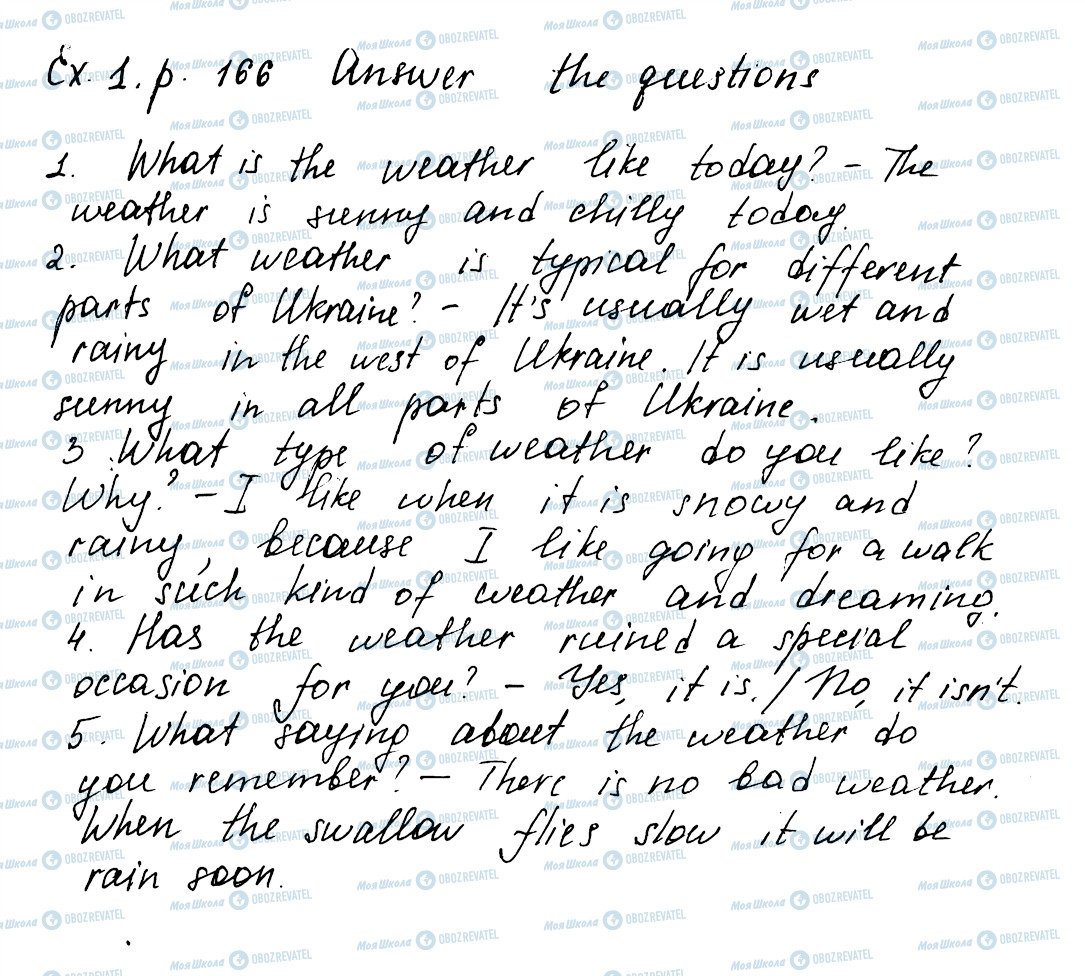 Ex. 1. p. 166 Answer the questions
1. What is the weather like today? – The
weather is sunny and chilly today.
2. What weather is typical for different
parts of Ukraine? – It's usually wet and
rainy in the west of Ukraine. It is usually
sunny in all parts of Ukraine.
3. What type of weather do you like?
Why? – I like when it is snowy and
rainy, because I like going for a walk
in such kind of weather and dreaming.
4. Has the weather ruined a special
occasion for you? – Yes, it is. / No, it isn't.
5. What saying about the weather do
you remember? – There is no bad weather.
When the swallow flies slow it will be
rain soon.
Моя Школа OBOZREVATEL